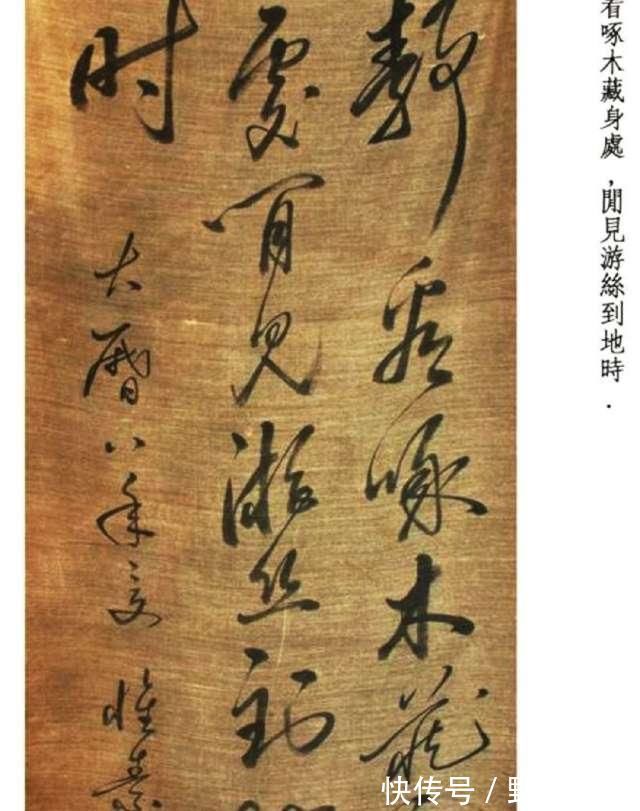 看啄木藏身處，閒見游絲到地時．
静看啄木藏
處閒見游丝到
时
大曆八年夏 懷素
快传号/野